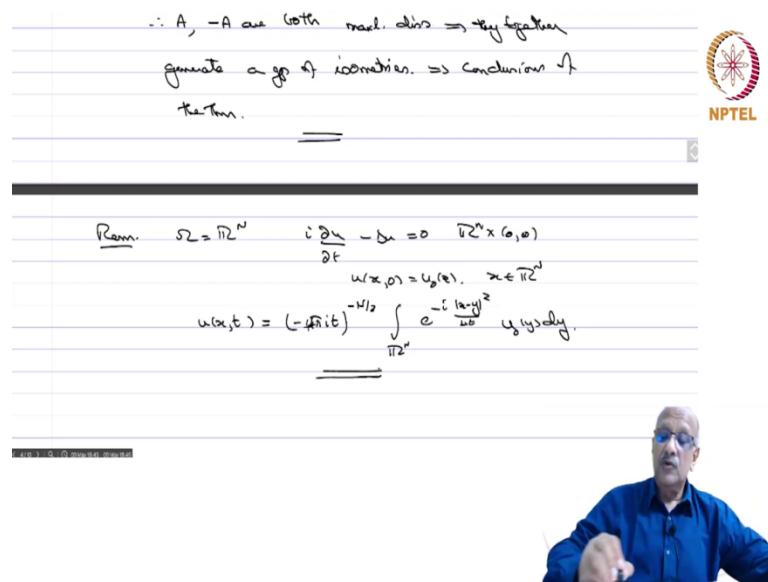 ∴ A, -A are both maxl. diss ⇒ they together
generate a gp of isometries. ⇒ Conclusions of
the Thm.
NPTEL
Rem. Ω = ℝᴺ i ∂u/∂t - Δu = 0 ℝᴺ × (0,∞)
u(x,0) = u₀(x). x ∈ ℝᴺ
u(x,t) = (-4πit)^{-N/2} ∫_{ℝᴺ} e^{-i |x-y|²/4t} u₀(y) dy.